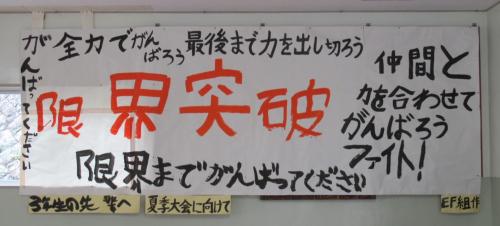 がんばってください
全力でがんばろう
最後まで力を出し切ろう
限界突破
仲間と
力を合わせて
がんばろう
ファイト!
限界までがんばってください
3年生の先輩へ
夏季大会に向けて
EF組作